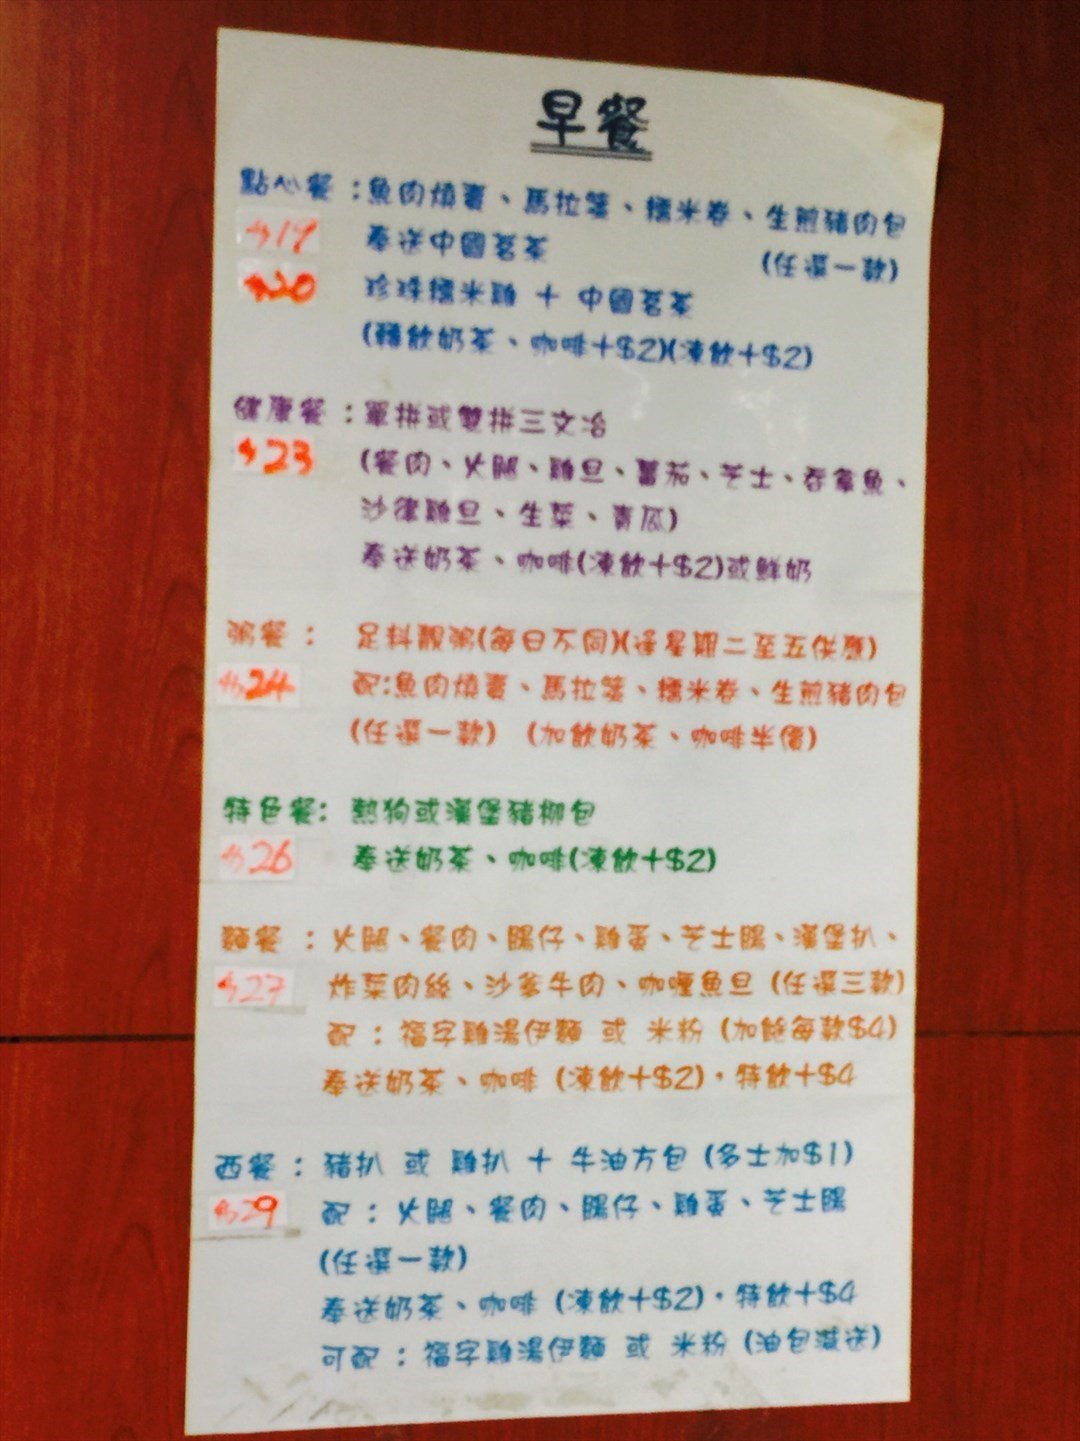 早餐
點心餐：魚肉燒賣、馬拉糕、糯米卷、生煎豬肉包
$19 奉送中國茗茶 (任選一款)
$20 珍珠糯米雞 + 中國茗茶
(轉飲奶茶、咖啡+$2)(凍飲+$2)
健康餐：單拼或雙拼三文治
$23 (餐肉、火腿、雞旦、蕃茄、芝士、吞拿魚、
沙律雞旦、生菜、青瓜)
奉送奶茶、咖啡(凍飲+$2)或鮮奶
粥餐： 足料靚粥(每日不同)(逢星期二至五供應)
$24 配:魚肉燒賣、馬拉糕、糯米卷、生煎豬肉包
(任選一款) (加飲奶茶、咖啡半價)
特色餐: 熱狗或漢堡豬柳包
$26 奉送奶茶、咖啡(凍飲+$2)
麵餐：火腿、餐肉、腸仔、雞蛋、芝士腸、漢堡扒、
$27 炸菜肉絲、沙爹牛肉、咖喱魚旦 (任選三款)
配：福字雞湯伊麵 或 米粉 (加餸每款$4)
奉送奶茶、咖啡 (凍飲+$2)·特飲+$4
西餐：豬扒 或 雞扒 + 牛油方包 (多士加$1)
$29 配：火腿、餐肉、腸仔、雞蛋、芝士腸
(任選一款)
奉送奶茶、咖啡 (凍飲+$2)·特飲+$4
可配：福字雞湯伊麵 或 米粉 (油包減送)